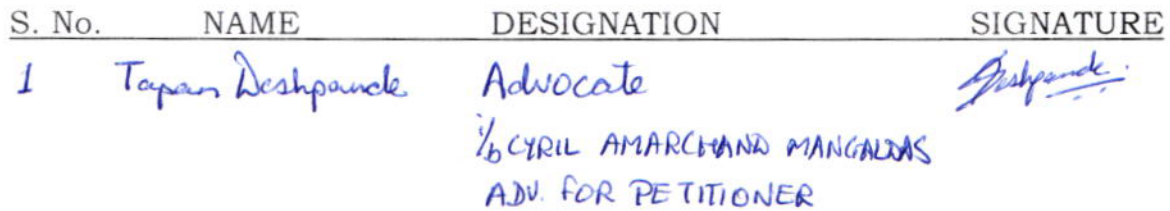 S. No. NAME DESIGNATION SIGNATURE
1 Tapan Deshpande Advocate Deshpande.
i/b CYRIL AMARCHAND MANGALDAS
ADV. FOR PETITIONER